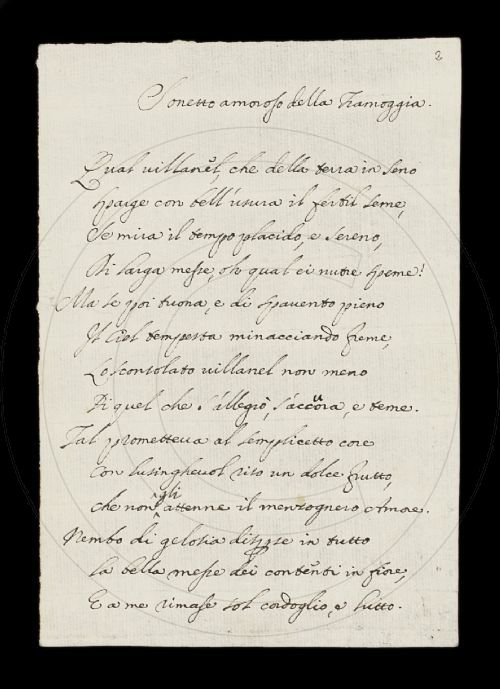 2
Sonetto amoroso della Tramoggia.
Qual villanel, che della terra in seno
sparge con bell'usura il fertil seme,
Se mira il tempo placido, e sereno,
Di larga messe, oh qual ei nutre speme!
Ma se poi tuona, e di spavento pieno
Il Ciel tempesta minacciando freme,
Lo sconsolato villanel non meno
Di quel che s'allegrò, s'accuora, e teme.
Tal prometteva al semplicetto core
Con lusinghevol riso un dolce frutto,
che non gli attenne il menzognero Amore.
Nembo di gelosia disperse in tutto
la bella messe dei contenti in fiore,
E a me rimase sol cordoglio, e lutto.